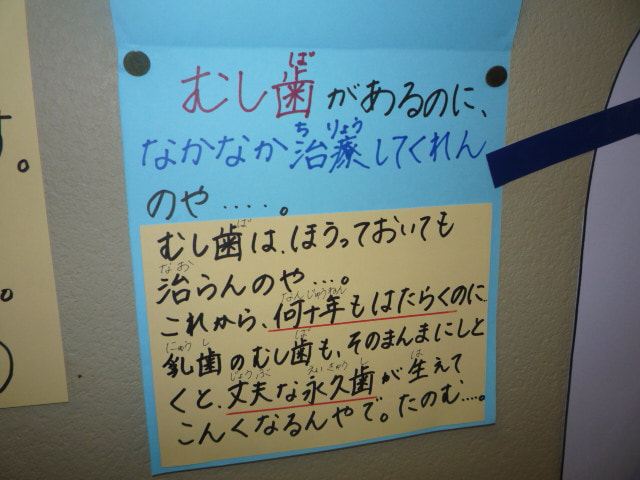 むし歯があるのに、
なかなか治療してくれん
のや‥‥。
むし歯は、ほうっておいても
治らんのや…。
これから、何十年もはたらくのに
乳歯のむし歯も、そのまんまにしと
くと、丈夫な永久歯が生えて
こんくなるんやで。たのむ…。
す。